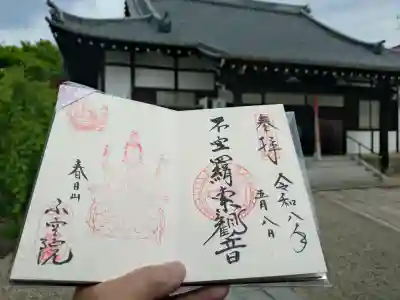 奉拝
令和八年
五月八日
不空羂索観音
春日山
不空院